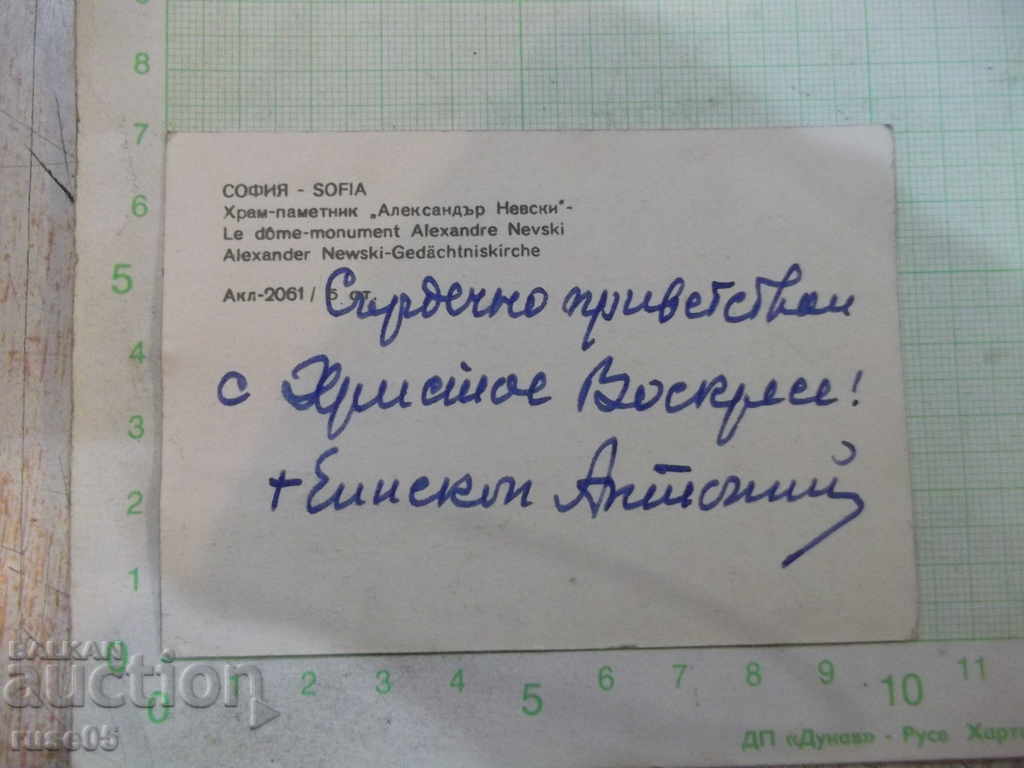 СОФИЯ - SOFIA
Храм-паметник „Александър Невски"-
Le dôme-monument Alexandre Nevski
Alexander Newski-Gedächtniskirche
Акл-2061 / 6 ст.
Сърдечно приветствам
с Христос Воскресе!
+ Епископ Антоний
8
7
6
5
4
3
2
1
0
0 1 2 3 4 5 6 7 8 9 10 11
ДП «Дунав» - Русе Харти
BALKAN
auction
ruse05